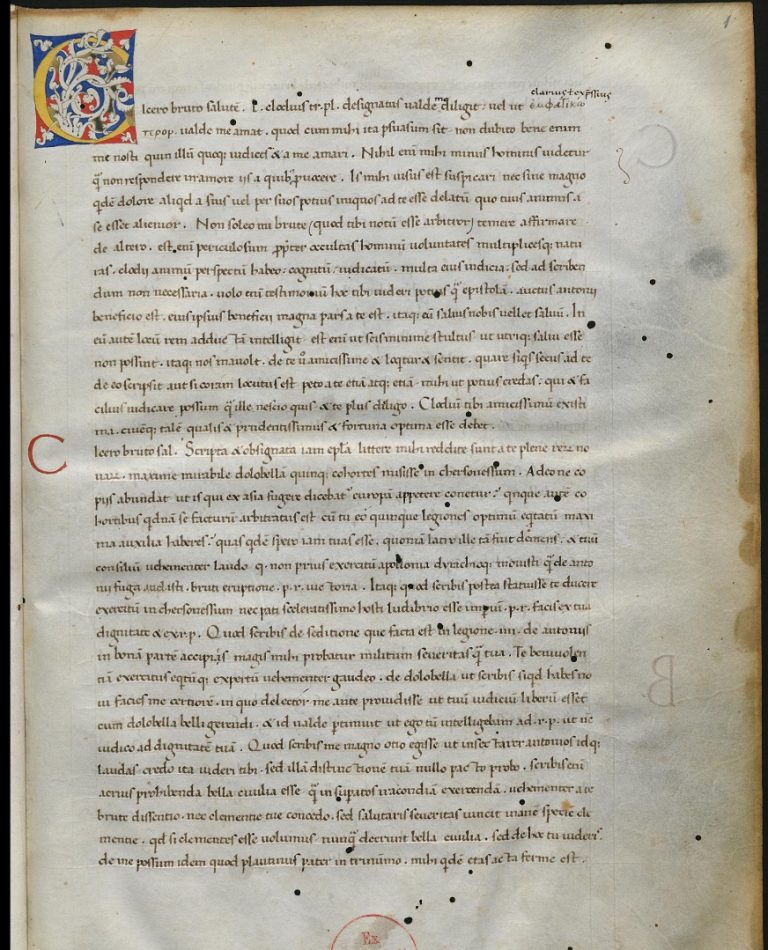 1
clarius & expressius
Cicero bruto salutē. L. clodius tr. pl. designatus ualde me diligit: uel ut ἐμφατικώ
τερον. ualde me amat. quod cum mihi ita psuasum sit. non dubito bene enim
me nosti quin illū quoq; iudices & a me amari. Nihil eni mihi minus hominis uidetur
q̄ non respondere in amore iis a quib; puocere. Is mihi uisus est suspicari nec sine magno
qdē dolore aliqd a suis uel per suos potius iniquos ad te esse delatū quo tuus animus a
se esset alienior. Non soleo mi brute (quod tibi notū esse arbitror) temere affirmare
de altero. est eni periculosum ppter occultas hominū uoluntates multiplicesq; natu
ras. clodii animū perspectū habeo: cognitū: iudicatū. multa eius iudicia: sed ad scriben
dum non necessaria. uolo eni testimoniū hoc tibi uideri potius q̄ epistolā. auctus antonii
beneficio est. eius ipsius beneficii magna pars a te est. itaq; eū saluis nobis uellet saluū. In
eū autē locū rem adductā intelligit. est eni ut scis minime stultus ut utriq; salui esse
non possint. itaq; nos mauolt. de te u̅ amicissime & loqtur & sentit. quare siqs secus ad te
de eo scripsit aut si coram locutus est peto a te etiā atq; etiā. mihi ut potius credas: qui & fa
cilius iudicare possum q̄ ille nescio quis & te plus diligo. Clodiū tibi amicissimū existi
ma. ciuēq; talē qualis & prudentissimus & fortuna optima esse debet.
Cicero bruto sal. Scripta & obsignata iam epla litterę mihi redditę sunt a te plenę rerū no
uarū. maxime mirabile dolobellā quinq; cohortes misisse in chersonessum. Adeone co
piis abundat ut is qui ex asia fugere dicebat europā appetere conetur? qnque autē co
hortibus qdnā se facturū arbitratus est cū tu eo quinque legiones optimū eqtatū maxi
ma auxilia haberes? quas qdē spero iam tuas esse: quoniā latro ille tā fuit demens. & tuū
consiliū uehementer laudo q. non prius exercitū apollonia dyrachioq; mouisti q̄ de anto
nii fuga audisti. bruti eruptione. p. r. uictoria. Itaq; quod scribis postea statuisse te ducere
exercitū in chersonessum nec pati sceleratissimo hosti ludibrio esse impiū. p. r. facis ex tua
dignitate & ex r. p. Quod scribis de seditione que facta est in legione. iiii. de antoniis
in bonā partē accipias magis mihi probatur militum seueritas q̄ tua. Te beniuolen
tiā exercitus eqtūq; expertū uehementer gaudeo. de dolobella ut scribis siqd habes no
ui facies me certiorē. in quo delector me ante prouidisse ut tuū iudiciū liberū esset
cum dolobella belli gerendi. & id ualde ptinuit ut ego tū intelligebam ad. r. p. ut nc̄
iudico ad dignitatē tuā. Quod scribis me magno otio egisse ut insectarer antonios idq;
laudas credo ita uideri tibi. sed illā distinctionē tuā nullo pacto probo. scribis eni
acrius prohibenda bella ciuilia esse q̄ in supatos iracondiā exercendā. uehementer a te
brute dissentio. nec clementie tuę concedo. sed salutaris seueritas uincit inanē speciē cle
mentie. qd si clementes esse uolumus. nunq̄ deerunt bella ciuilia. sed de hoc tu uideri.
de me possum idem quod plautinus pater in trinūmo. mihi qdē etas acta ferme est.
Ex